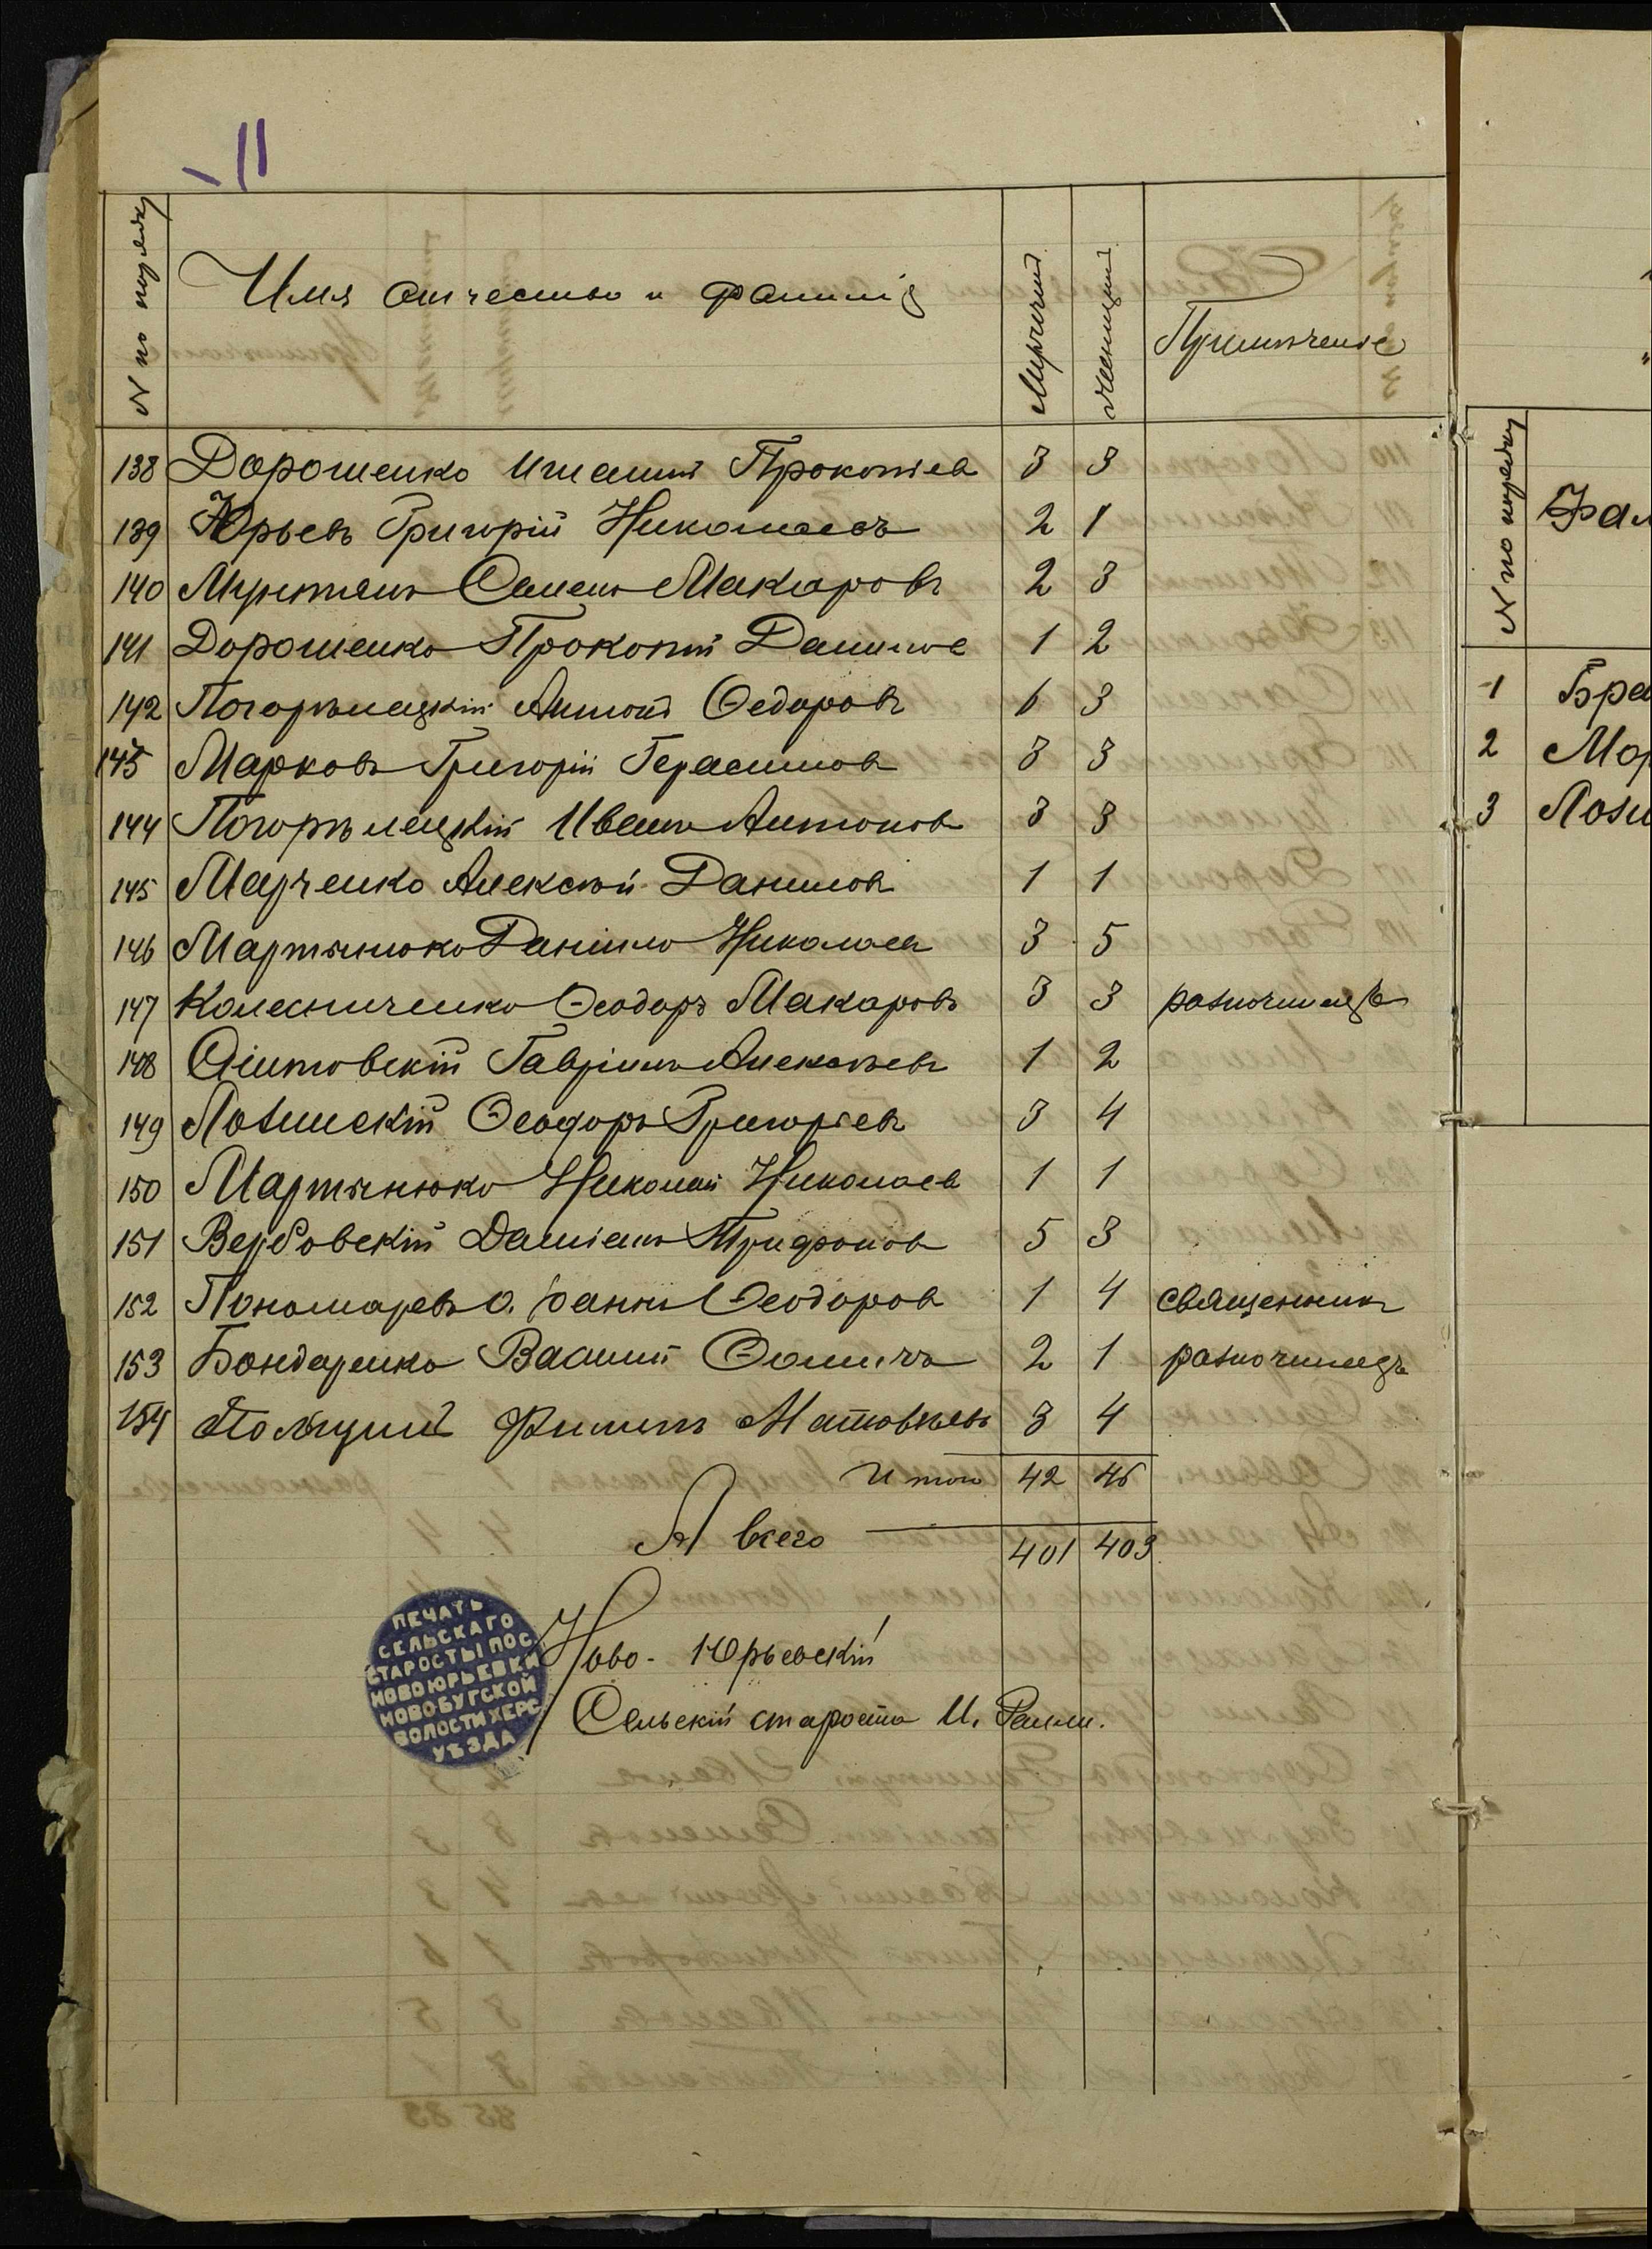 11
№ по порядку Имя отчество и фамилія Мужчинъ Женщинъ Примѣчаніе
138 Дорошенко Игнатій Прокопіев 3 3
139 Юрьевъ Григорій Николаевъ 2 1
140 Семенъ Макаровъ 2 3
141 Дорошенко Прокопій Данилов 1 2
142 Погорѣлецкій Антонъ Ѳедоровъ 6 3
143 Марковъ Григорій Герасимов 3 3
144 Погорѣлецкій Иванъ Антонов 3 3
145 Марченко Алексѣй Данилов 1 1
146 Мартынюко Даніило Николаев 3 5
147 Колесниченко Ѳеодоръ Макаровъ 3 3 разночинецъ
148 Гавріилъ Алексѣевъ 1 2
149 Лозинскій Ѳеодоръ Григорьевъ 3 4
150 Мартынюко Николай Николаев 1 1
151 Вербовскій Даміанъ Трифонов 5 3
152 Пономаревъ о. Іоаннъ Ѳеодоров 1 4 священникъ
153 Бондаренко Василій Ѳомичъ 2 1 разночинецъ
154 Филипъ Матовѣевъ 3 4
Итого 42 46
А всего 401 403
ПЕЧАТЬ
СЕЛЬСКАГО
СТАРОСТЫ ПОС
НОВОЮРЬЕВКИ
НОВОБУГСКОЙ
ВОЛОСТИ ХЕРС
УѢЗДА
Ново-Юрьевскій
Сельскій староста И.
№ по порядку Фам
1 Бра
2 Мор
3 Лози